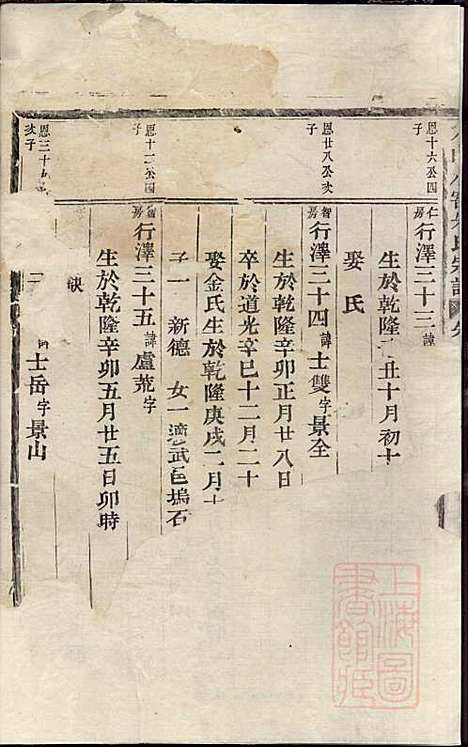 氏宗譜
恩十六公四子
仁房行澤三十三諱
生於乾隆 丑十月初十
娶氏
恩廿八公次子
智房行澤三十四諱士雙字景全
生於乾隆辛卯正月廿八日
卒於道光辛巳十二月二十
娶金氏生於乾隆庚戌二月十
子一 新德 女一適武邑塢石
恩十二公四子
智房行澤三十五諱盧荒字
生於乾隆辛卯五月廿五日卯時
缺
恩三十五 次子
三 士岳字景山
上海圖書館藏